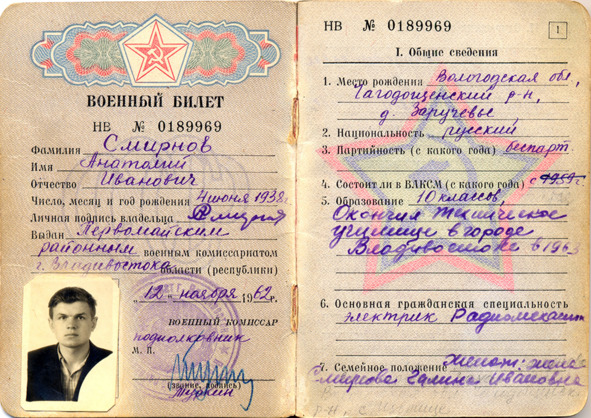 ВОЕННЫЙ БИЛЕТ
НВ № 0189969
Фамилия Смирнов
Имя Анатолий
Отчество Иванович
Число, месяц и год рождения 4 июня 1938 г.
Личная подпись владельца
Выдан Первомайским
районным военным комиссариатом
г. Владивостока области (республики)
„12" ноября 1962 г.
ВОЕННЫЙ КОМИССАР
подполковник
М. П.
(звание, подпись)
НВ № 0189969
1
I. Общие сведения
1. Место рождения Вологодская обл,
Чагодощенский р-н,
д. Заручевье
2. Национальность русский
3. Партийность (с какого года) беспарт
4. Состоит ли в ВЛКСМ (с какого года) с 1959 г.
5. Образование 10 классов,
Окончил техническое
училище в городе
Владивостоке в 1963
6. Основная гражданская специальность
электрик Радиомеханик
7. Семейное положение женат: жена
Смирнова Галина Ивановна